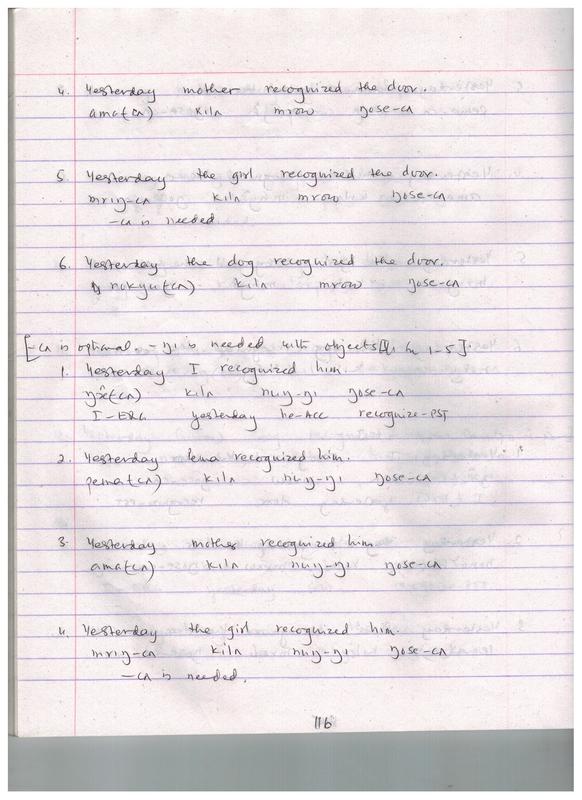 4. Yesterday mother recognized the door.
ama(cʌ) kilʌ mrow ŋose-cʌ
5. Yesterday the girl recognized the door.
mriŋ-cʌ kilʌ mrow ŋose-cʌ
-cʌ is needed
6. Yesterday the dog recognized the door.
nokyu(cʌ) kilʌ mrow ŋose-cʌ
[-cʌ is optional. -ŋi is needed with objects in 1-5].
1. Yesterday I recognized him.
ŋx̂(cʌ) kilʌ huŋ-ŋi ŋose-cʌ
I-ERG yesterday he-ACC recognize-PST
2. Yesterday Pema recognized him.
pema(cʌ) kilʌ huŋ-ŋi ŋose-cʌ
3. Yesterday mother recognized him.
ama(cʌ) kilʌ huŋ-ŋi ŋose-cʌ
4. Yesterday the girl recognized him.
mriŋ-cʌ kilʌ huŋ-ŋi ŋose-cʌ
-cʌ is needed.
116